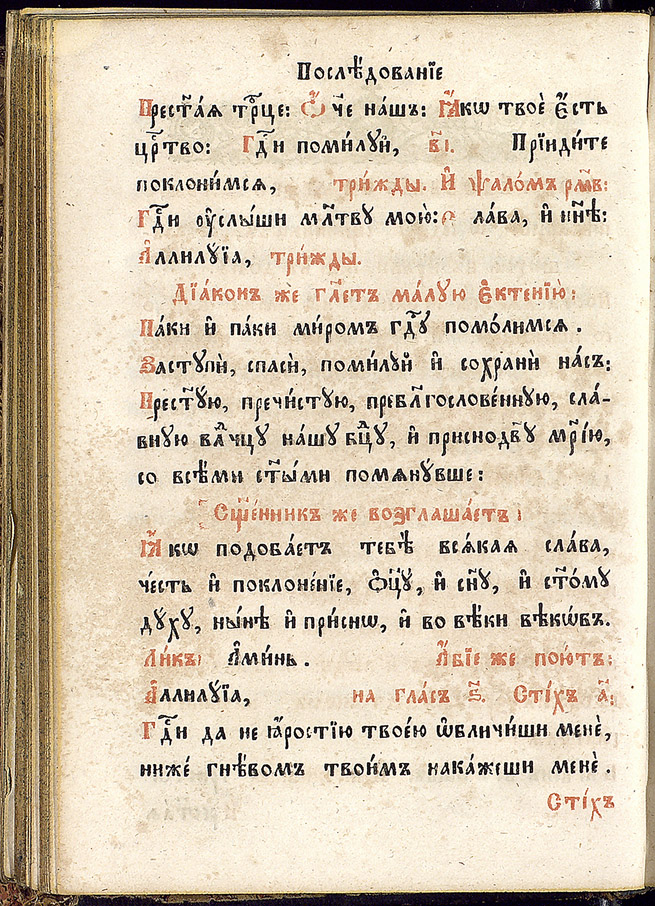 Послѣ́дованїе
Прест҃а́ѧ трⷪ҇це: Ѿ́ че на́шъ: Ꙗ҆́кѡ твоѐ є҆́сть
црⷭ҇тво: Гдⷭ҇и поми́лꙋй, в҃і. Прїиди́те
поклони́мсѧ, три́жды. И҆ ѱало́мъ рл҃в:
Гдⷭ҇и ᲂу҆слы́ши мл҃твꙋ мою̀: Сла́ва, и҆ нн҃ѣ:
А҆ллилꙋ́їа, три́жды.
Дїа́конъ же гл҃етъ ма́лꙋю є҆ктенїю̀:
Па́ки и҆ па́ки ми́ромъ гдⷭ҇ꙋ помо́лимсѧ.
Застꙋпѝ, спасѝ, поми́лꙋй и҆ сохранѝ на́съ:
Прест҃ꙋ́ю, пречи́стꙋю, пребл҃гослове́ннꙋю, сла́-
внꙋю влⷣчцꙋ на́шꙋ бцⷣꙋ, и҆ приснодв҃ꙋ мр҃і́ю,
со всѣ́ми ст҃ы́ми помѧнꙋ́вше:
Сщ҃е́нникъ же возглаша́етъ:
Ꙗ҆́кѡ подоба́етъ тебѣ̀ всѧ́каѧ сла́ва,
че́сть и҆ поклоне́нїе, ѻ҆ц҃ꙋ̀, и҆ сн҃ꙋ, и҆ ст҃о́мꙋ
дꙋ́хꙋ, ны́нѣ и҆ при́снѡ, и҆ во вѣ́ки вѣкѡ́въ.
Ли́къ: А҆ми́нь. А҆́бїе же пою́тъ:
А҆ллилꙋ́їа, на гла́съ ѕ҃. Сті́хъ а҃:
Гдⷭ҇и да не ꙗ҆́ростїю твое́ю ѡ҆бличи́ши менѐ,
ниже́ гнѣ́вомъ твои́мъ нака́жеши менѐ.
Сті́хъ